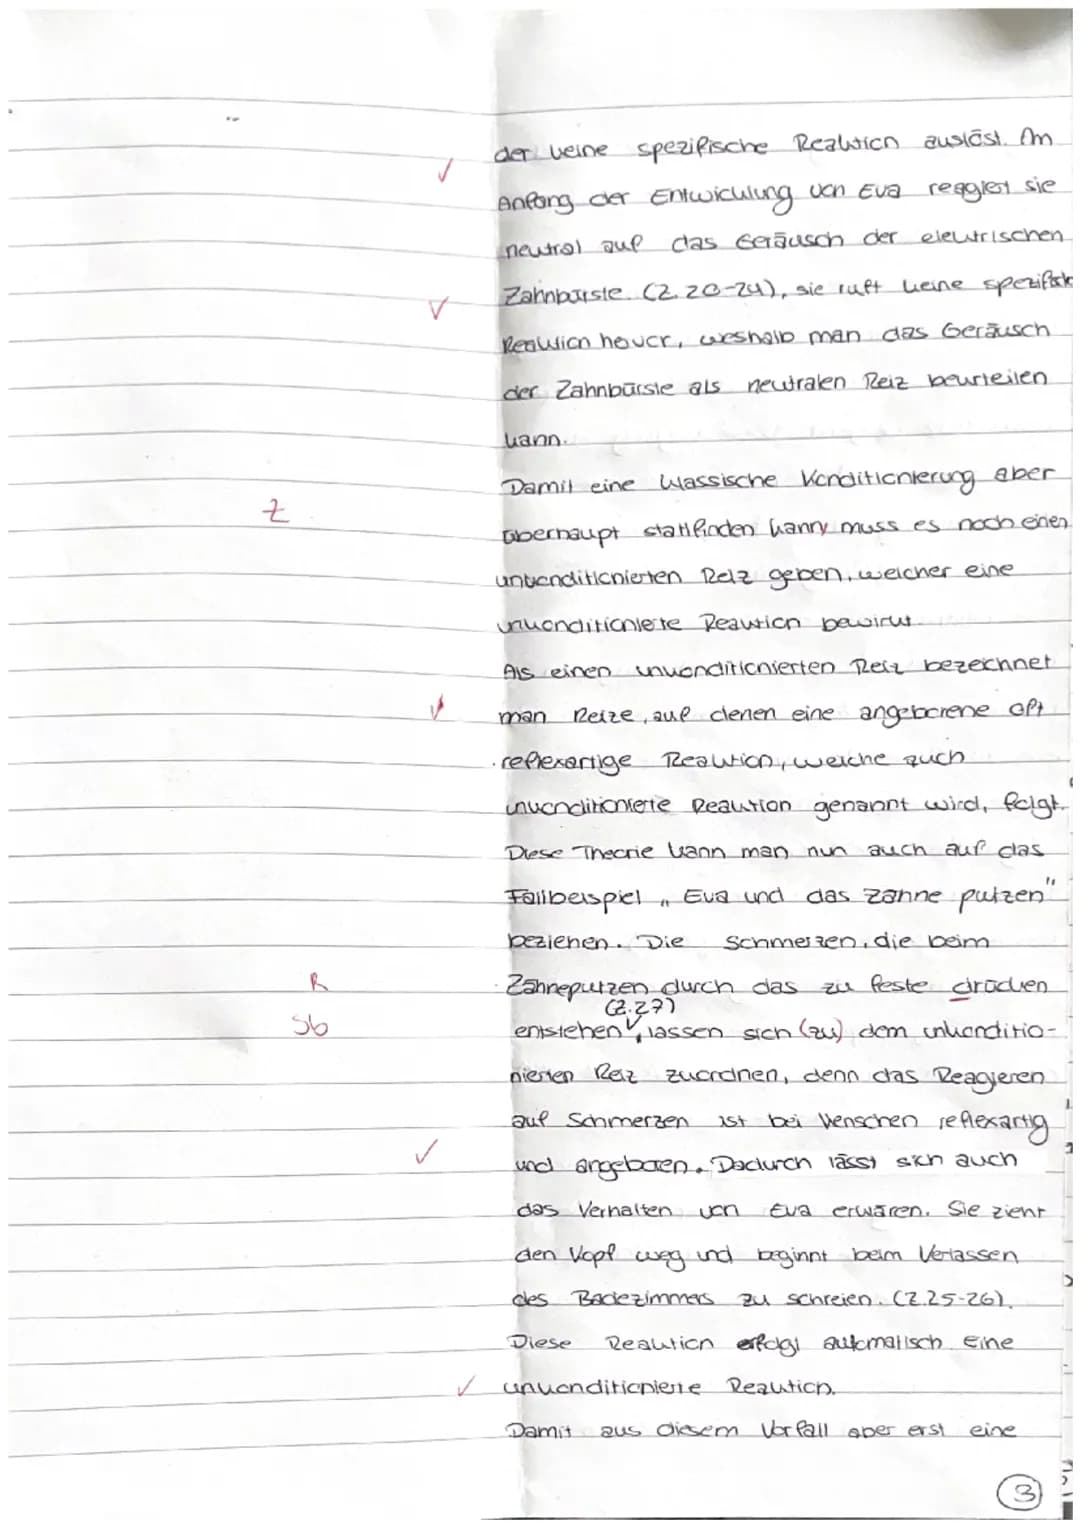 der keine spezifische Reaktion auslöst. Am
✓
Anfang der Entwicklung von Eva reagiert sie
neutral auf das Geräusch der elektrischen
Zahnbürste. (Z. 20-24), sie ruft keine spezifisch
✓
Reaktion hevor, weshalb man das Geräusch
der Zahnbürste als neutralen Reiz beurteilen
kann.
Damit eine klassische Konditionierung aber
Z
überhaupt stattfinden kann, muss es noch einen
unkonditionierten Reiz geben, welcher eine
unkonditionierte Reaktion bewirkt.
Als einen unkonditionierten Reiz bezeichnet
✓ man Reize, auf denen eine angeborene oft
reflexartige Reaktion, welche auch
unkonditionierte Reaktion genannt wird, folgt.
Diese Theorie kann man nun auch auf das
Fallbeispiel „Eva und das Zähne putzen"
beziehen. Die Schmerzen, die beim
R Zähneputzen durch das zu feste drücken
(Z.27)
Sb entstehen, lassen sich (zu) dem unkonditio-
nierten Reiz zuordnen, denn das Reagieren
auf Schmerzen ist bei Menschen reflexartig
✓ und angeboren. Dadurch lässt sich auch
das Verhalten von Eva erklären. Sie zieht
den Kopf weg und beginnt beim Verlassen
des Badezimmers zu schreien. (Z.25-26).
Diese Reaktion erfolgt automatisch. Eine
✓ unkonditionierte Reaktion.
Damit aus diesem Vorfall aber erst eine
3